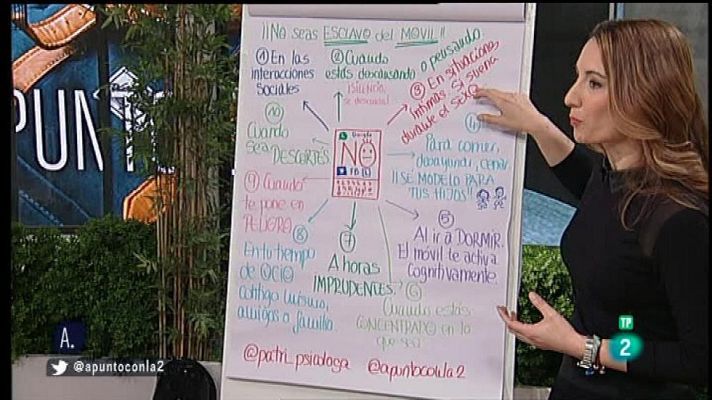 ¡¡No seas ESCLAVO del MÓVIL!!
① En las
interacciones
sociales
② Cuando
estás descansando o pensando.
¡SILENCIO,
se descansa!
③ En situaciones
íntimas. Si suena
durante el sexo
④
Para comer,
desayunar, cenar.
¡¡SE MODELO PARA
TUS HIJOS!!
⑤
Al ir a DORMIR.
El móvil te activa
cognitivamente.
⑥
Cuando estás
CONCENTRADO en lo
que sea
⑦
A horas
IMPRUDENTES.
⑧
En tu tiempo
de OCIO
contigo mismo,
amigos o familia.
⑨ Cuando
te pone en
PELIGRO
⑩
Cuando
sea
DESCORTÉS.
Google
NO
@patri_psicologa @apuntoconla2
APUNTO
A.
@apuntoconla2
TP
2